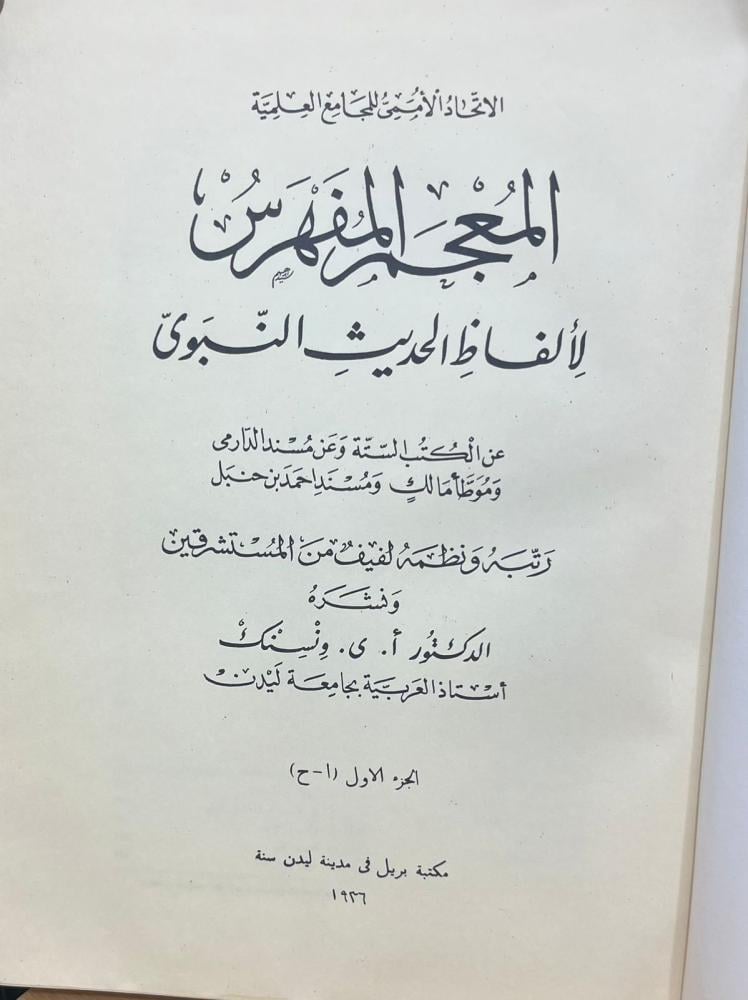 الاتّحادُ الأُمَمِىُّ للمجَامِعِ العِلمِيَّة
المُعْجَمُ المُفَهْرَسُ
لِأَلفَاظِ الحَدیثِ النَّبَوىّ
عَنِ الْكُتُبِ السِّتَّة وَعَن مُسْنَد الدَّارمى
وَمُوَطَّأ مَالِكٍ وَمُسْنَدِ احمَدَ بن حنبَل
رَتَّبَهُ وَنَظمَهُ لَفيفٌ مِنَ المُسْتَشرقين
وَنشَرَهُ
الدكتُور أ. ى. وِنْسِنْك
أستاذ العَرَبيَّة بجَامعَة لَيْدن
الجزء الاول (ا - ح)
مكتبة بريل فى مدينة ليدن سنة
١٩٣٦